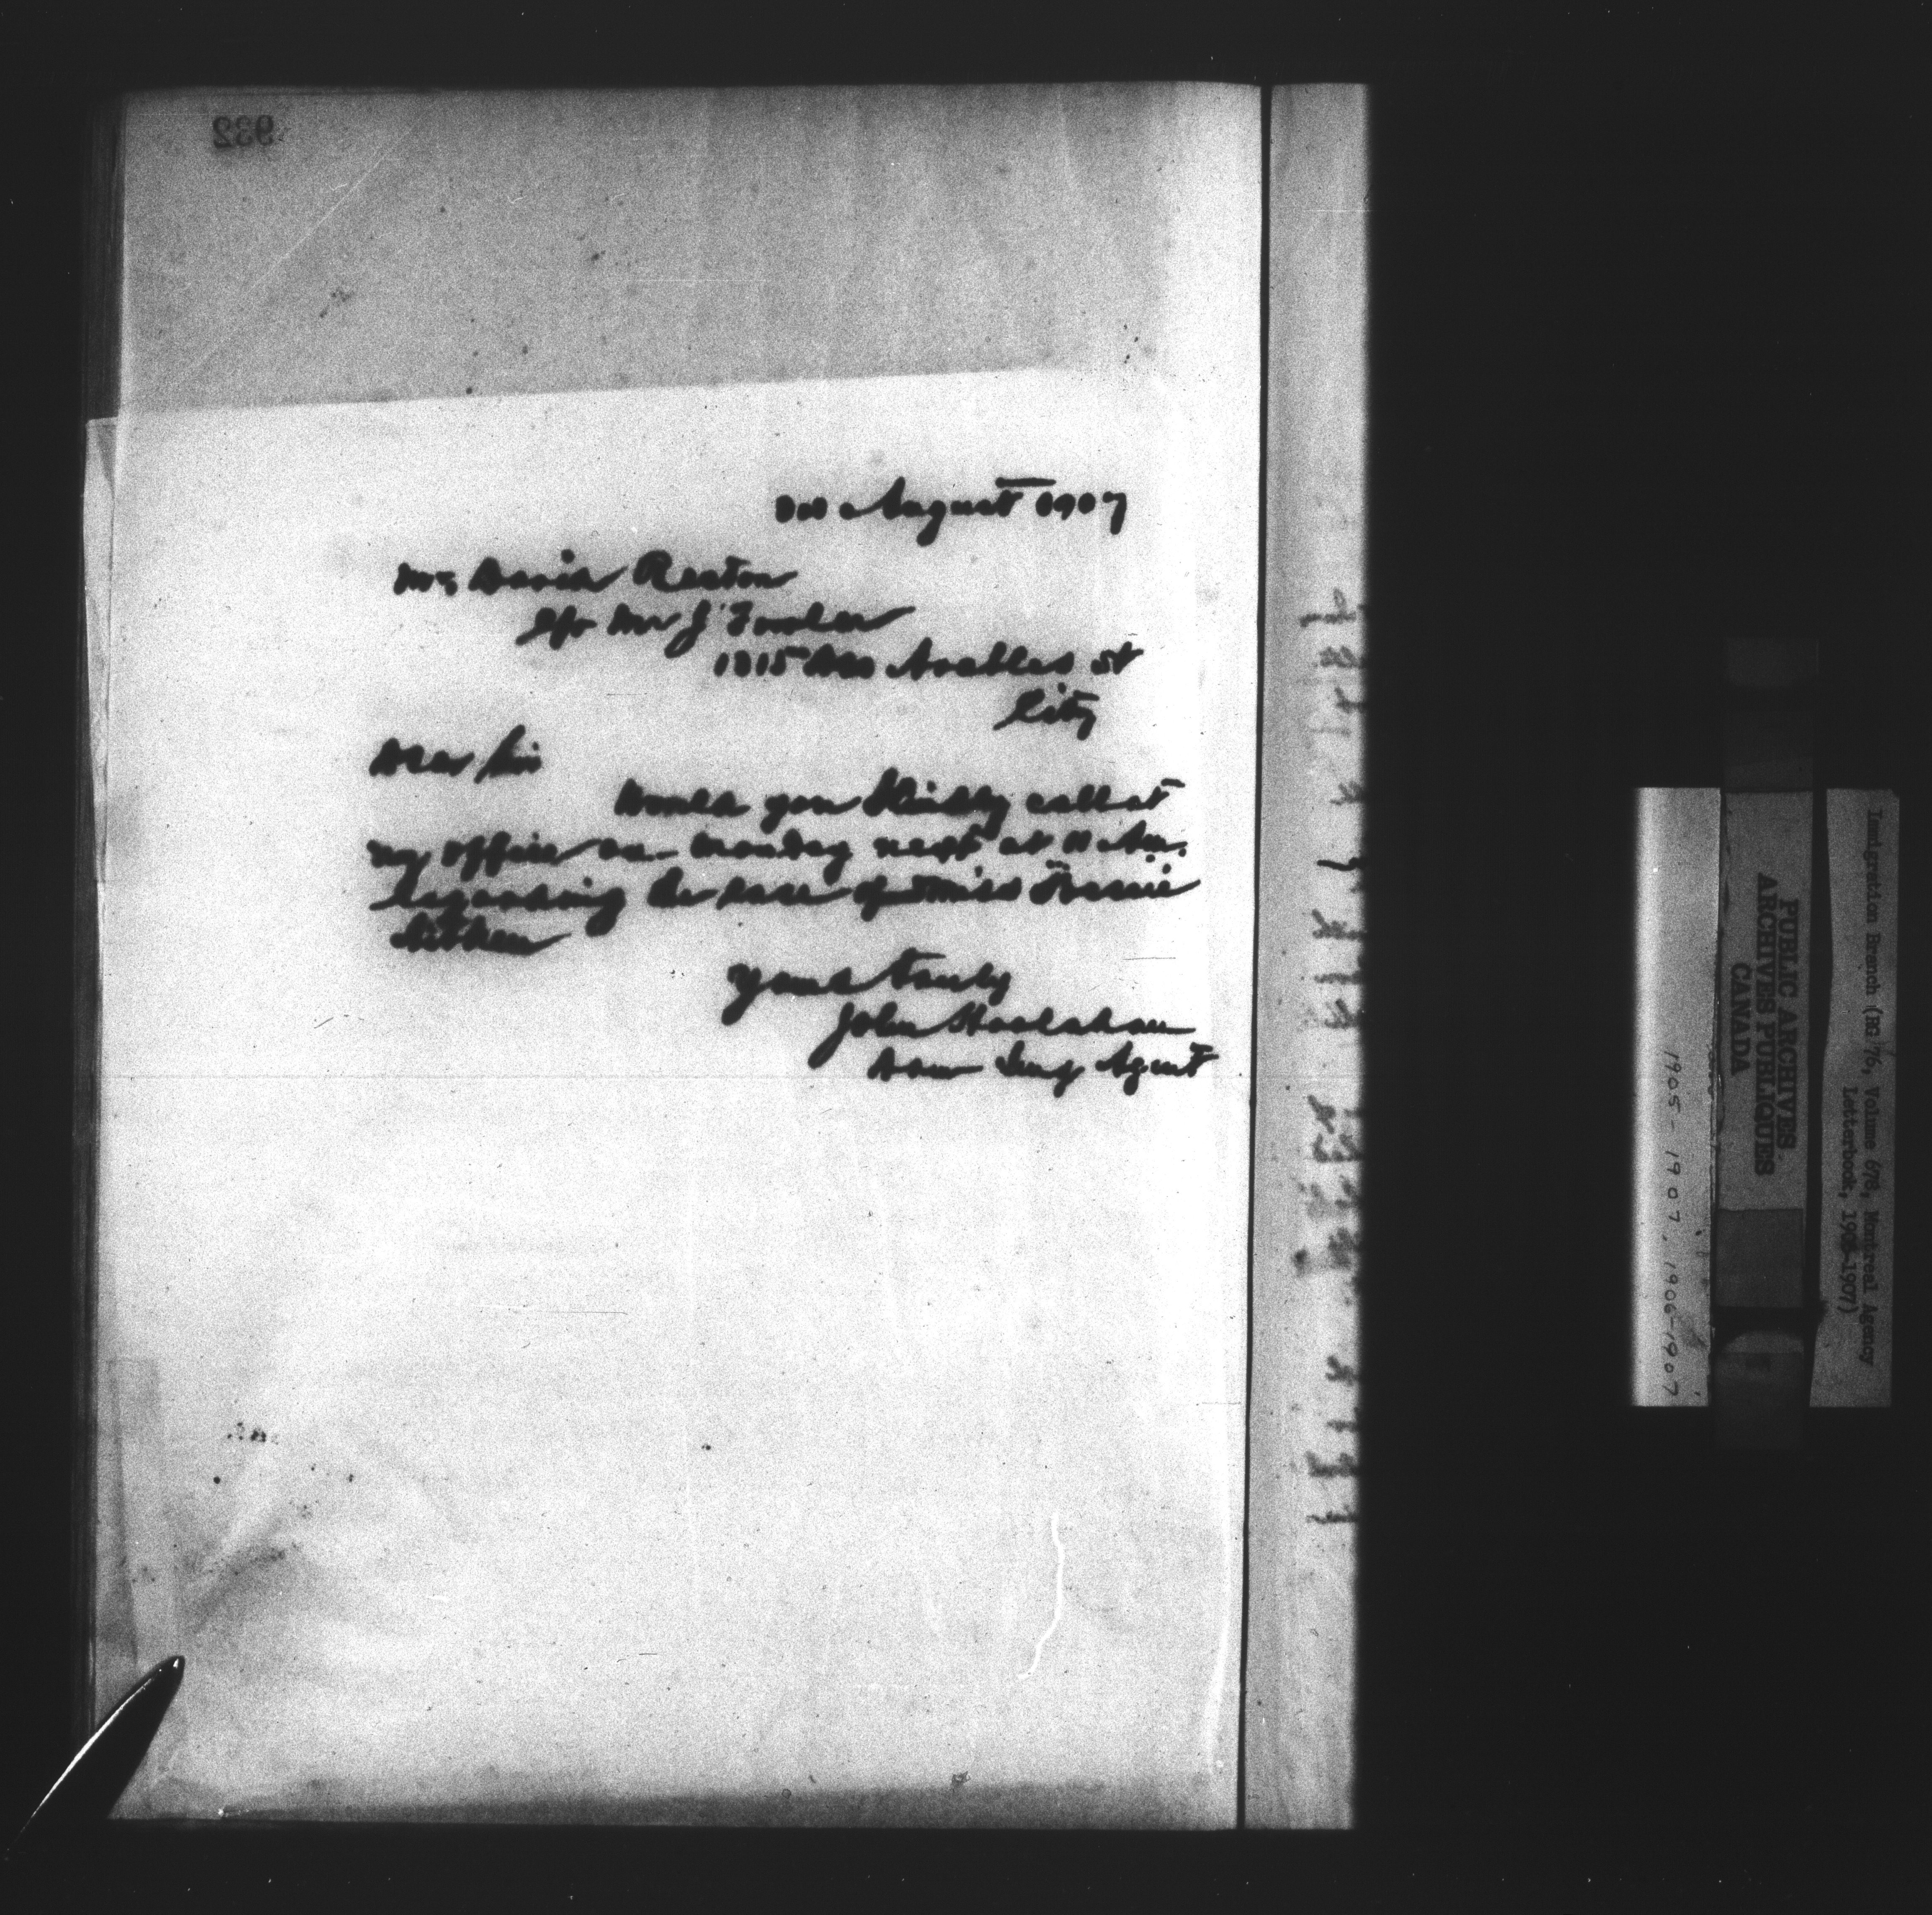 932
August 1907
Mr David Reston
c/o Mr J Fowler
1315 Des Erables St
City
Dear Sir
Would you Kindly call at
my office on Monday next at 11 Am.
regarding the case of Miss Bessie
Aitken
Yours truly
John Hoolahan
Dom Img Agent
Immigration Branch (RG 76, Volume 678, Montreal Agency
Letterbook, 1907)
PUBLIC ARCHIVES
ARCHIVES PUBLIQUES
CANADA
1905-1907, 1906-1907